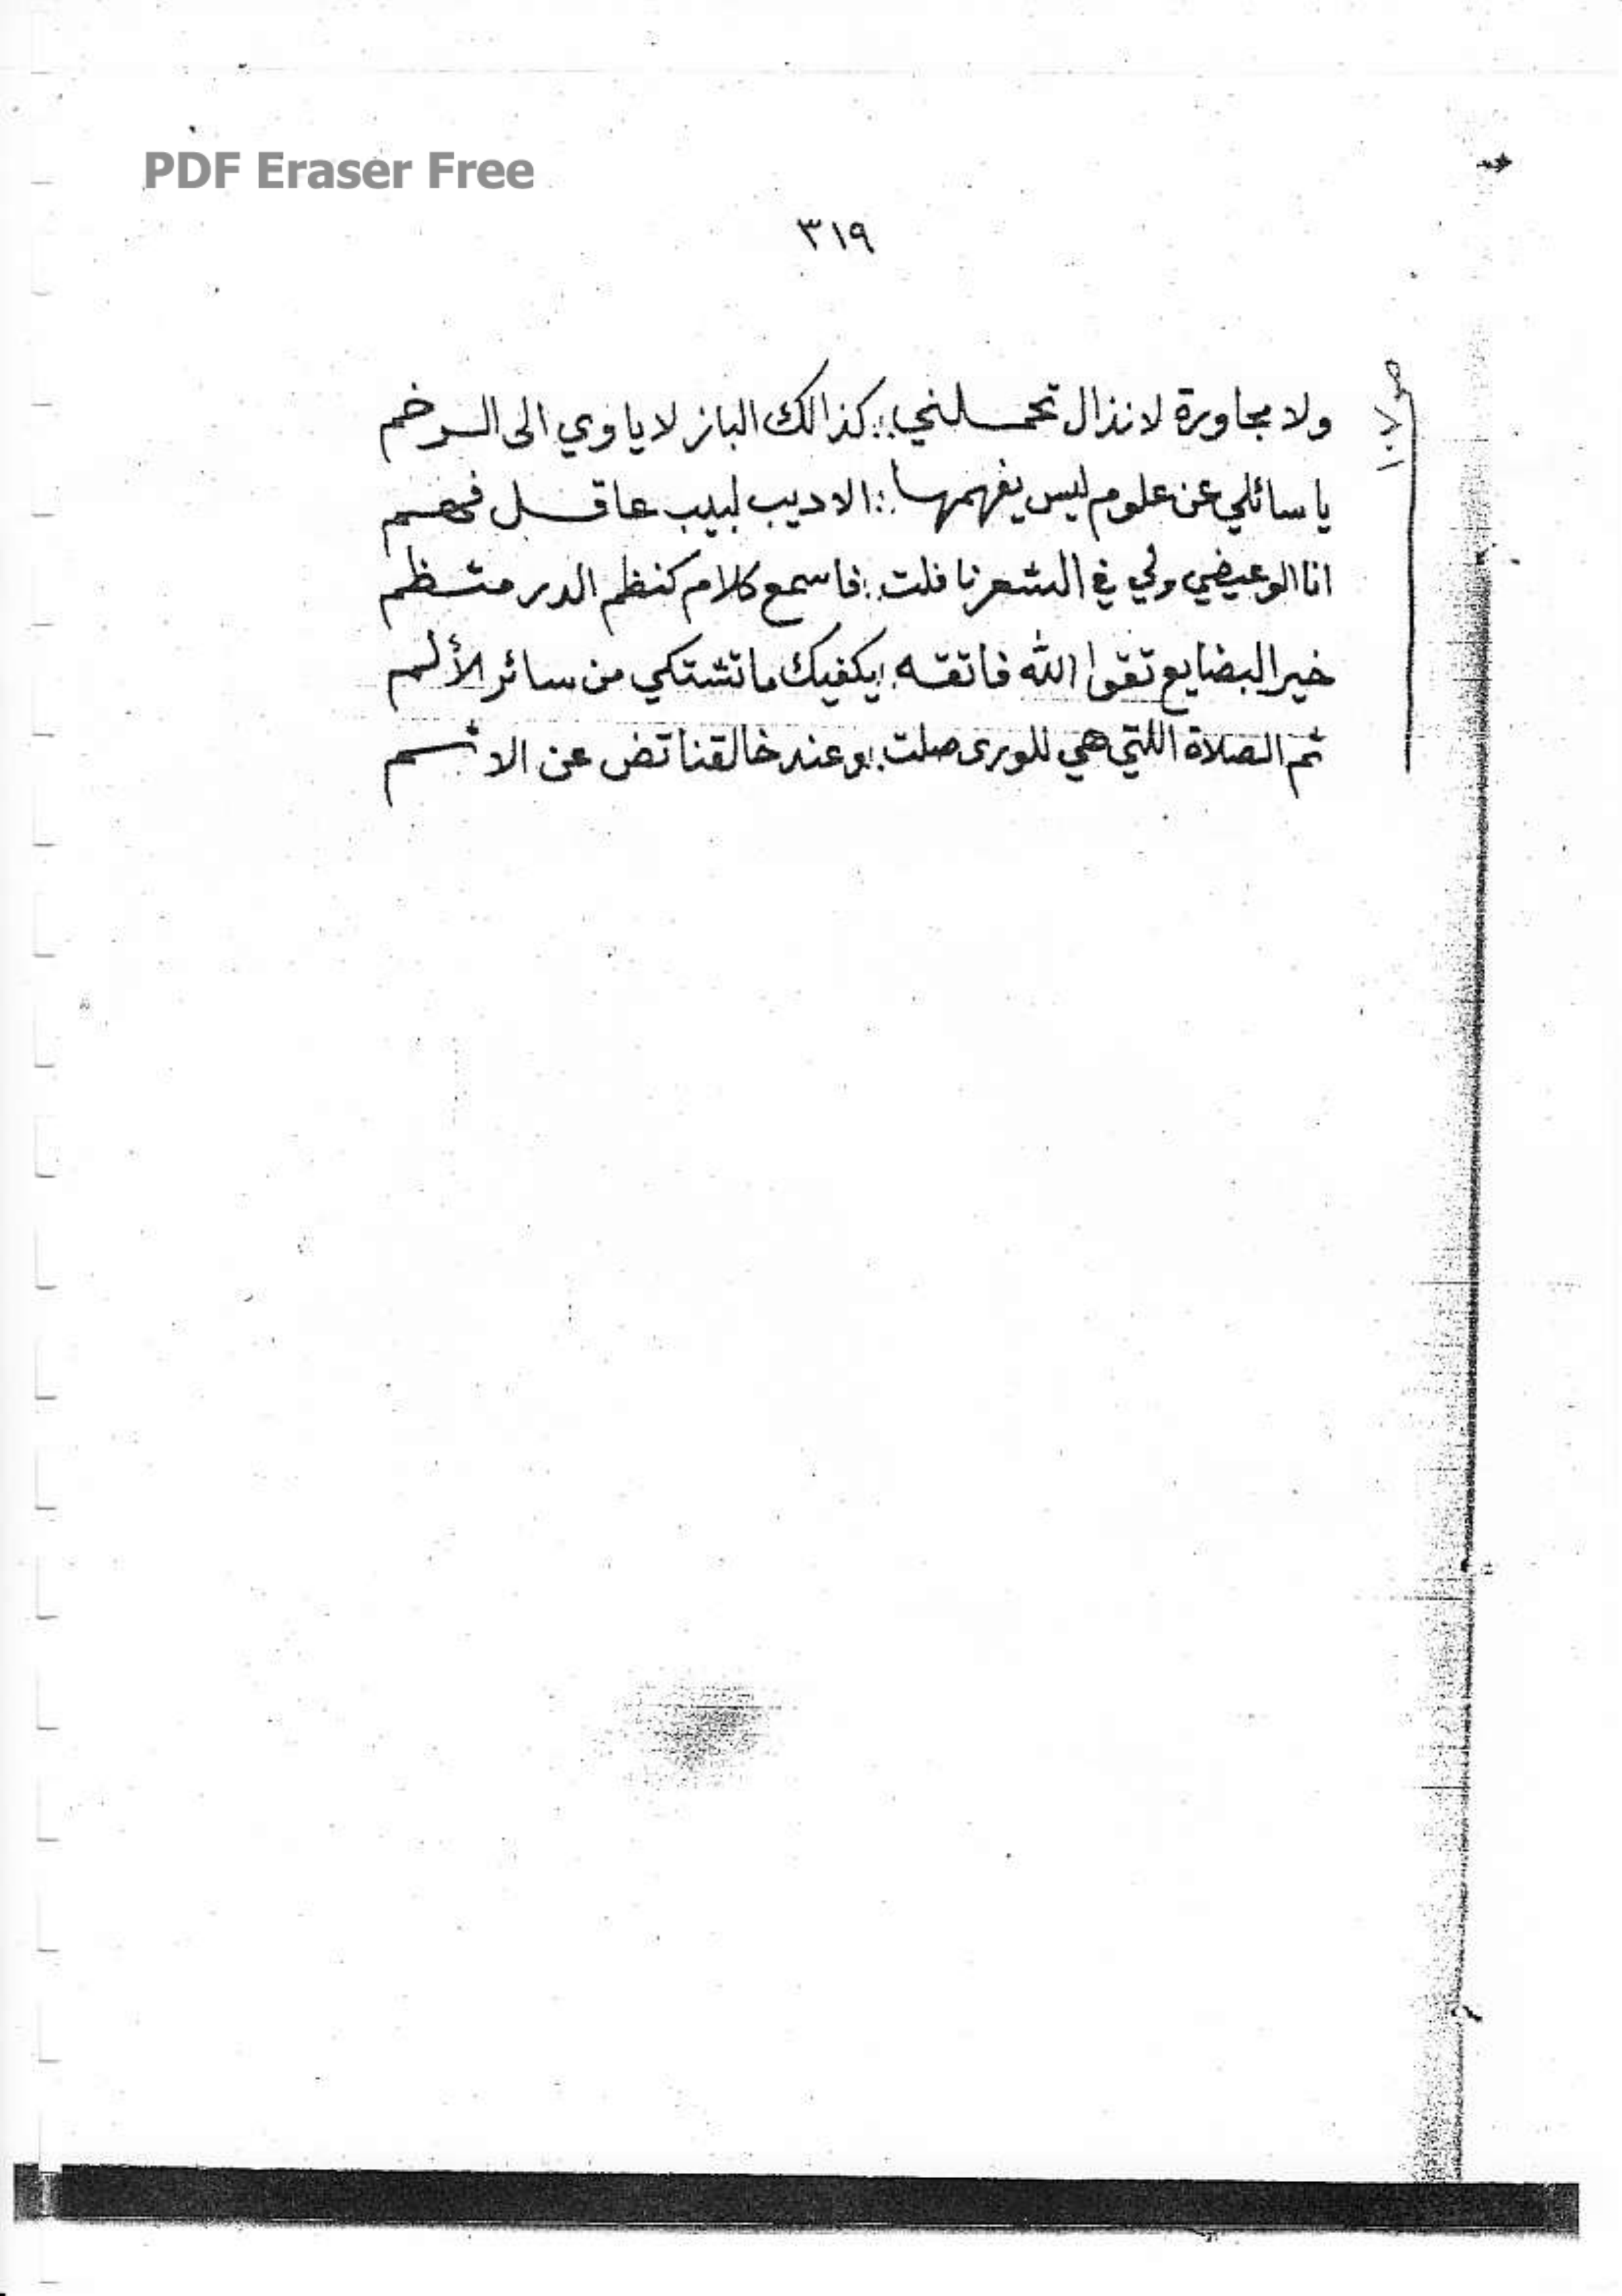 PDF Eraser Free
٣١٩
ولا مجاورة لانذال تحملني :: كذالك الباز لا ياوي الى الرخم
ياسائلي عن علوم ليس يفهمها :: الاديب لبيب عاقل فهم
انا الوعيضي ولي في الشعر نافلت :: فاسمع كلام كنظم الدر منتظم
خير البضايع تقوا الله فاتقه :: يكفيك ما تشتكي من سائر الألم
ثم الصلاة اللتي هي للورى صلت :: وعند خالقنا تض عن الاثم